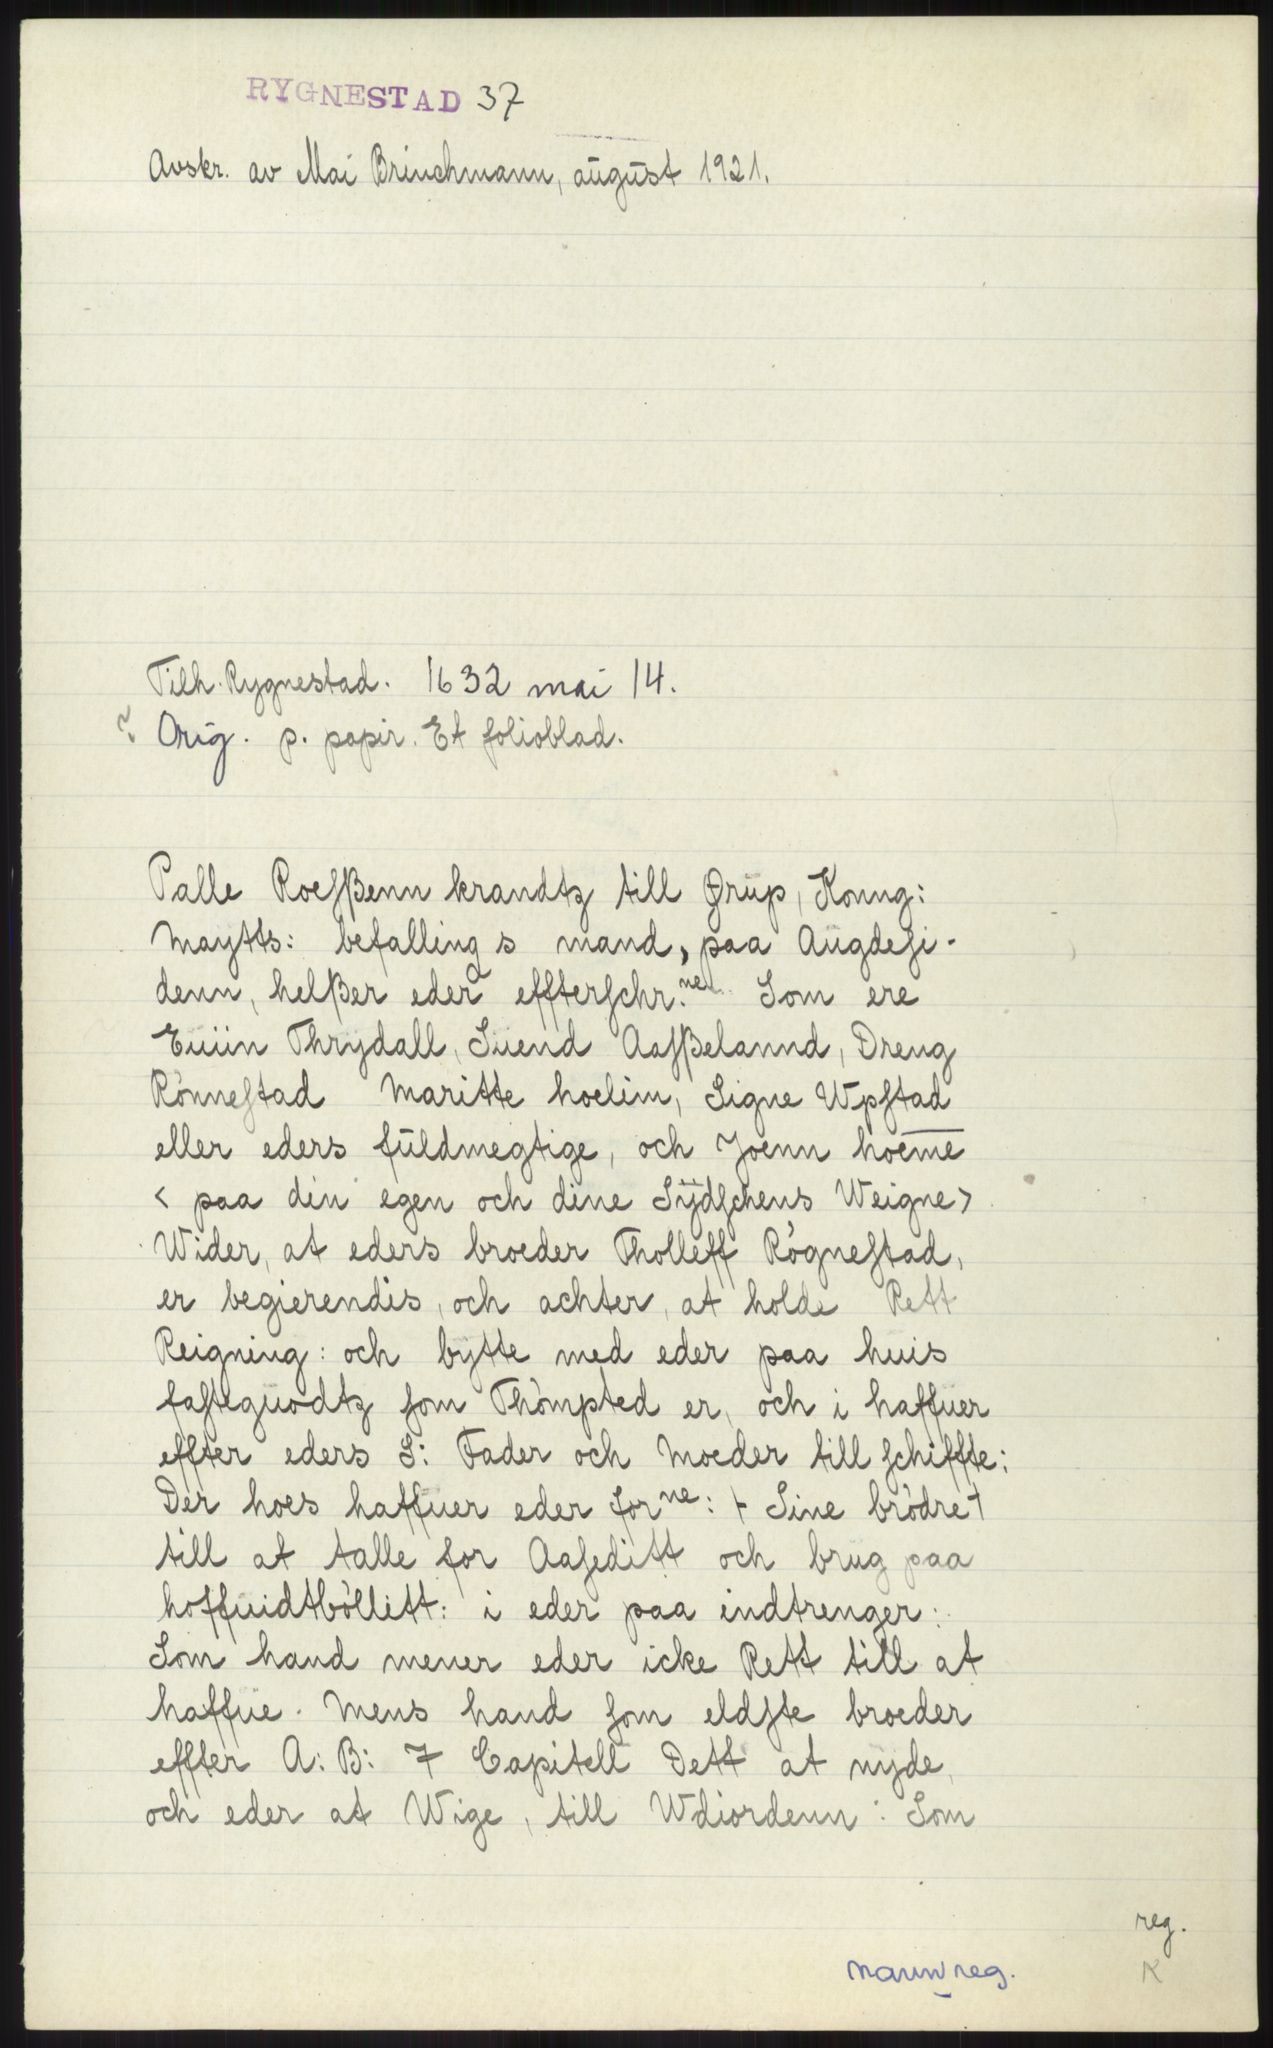 RYGNESTAD 37
Avskr. av Mai Brinchmann, august 1921.
Tilh. Rygnestad. 1632 mai 14.
? Orig. p. papir. Et folioblad.
Palle Roesßenn krandtz till Ørup, Konng:
Maytts: befallings mand, paa Augdesi-
denn, helßer eder effterschr.ne Som ere
Euiin Thrydall, Suend Aasßelannd, Dreng
Rönnestad Maritte hoelim, Signe Wpstad
eller eders fuldmegtige, och Joenn hoeme
< paa din egen och dine Sÿdschens Weigne >
Wider, at eders broeder Tholleff Rögnestad,
er begierendis, och achter, at holde Rett
Reigning: och bytte med eder paa huis
fasteguodtz som Thömpted er, och i haffuer
effter eders S: Fader och Moeder till schiffte:
Der hoes haffuer eder forne: + Sine brödre +
till at talle for Aaseditt och brug paa
hoffuidtböllitt: i eder paa indtrenger:
Som hand mener eder icke Rett till at
haffue. Mens hand som eldste broeder
effter A: B: 7 Capitell Dett at nyde,
och eder at Wige, till Wdiordenn: Som
reg.
navnreg.
K